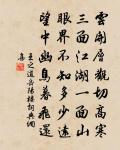 雲開層觀切高寒
三面江湖一面山
眼界不知多少遠
望中幽鳥暮飛還
王之道岳陽樓詞典網
集